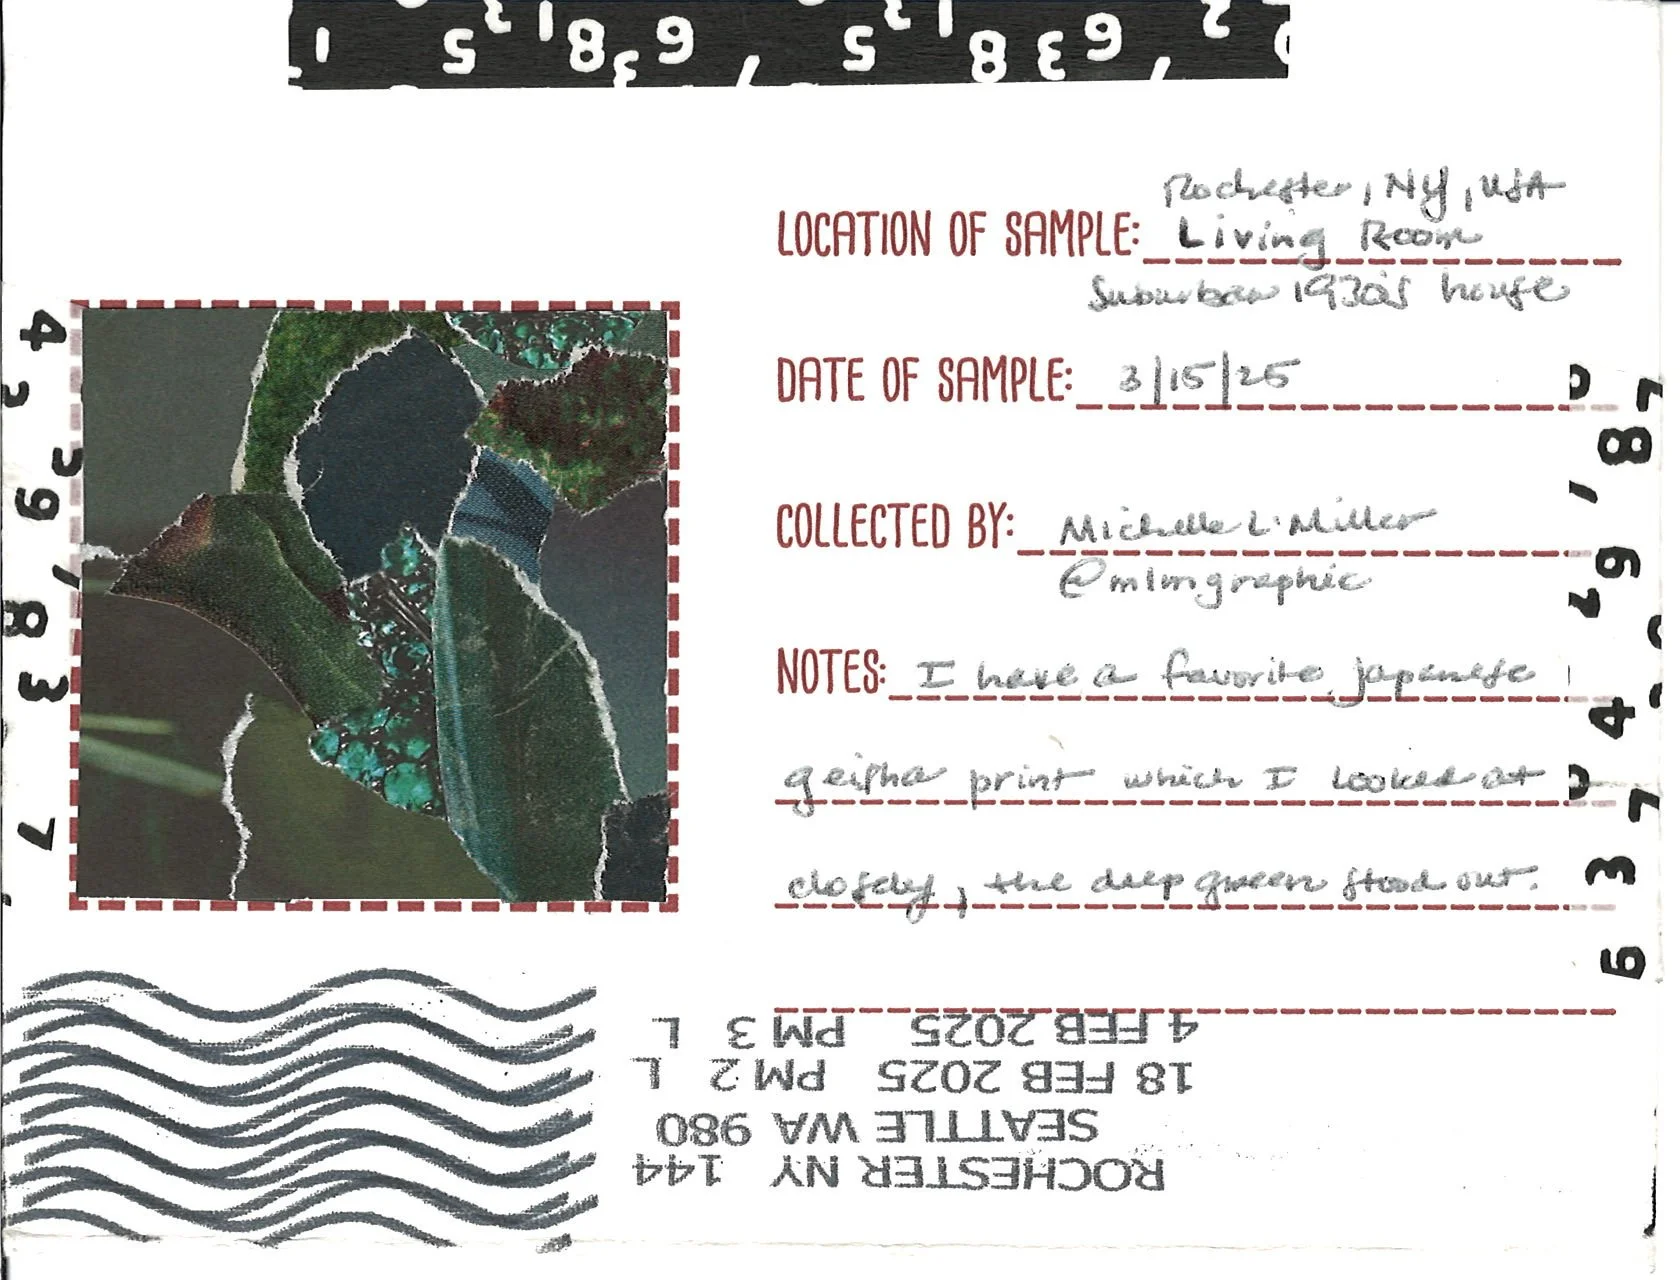 Rochester, NY, USA
LOCATION OF SAMPLE: Living Room
Suburban 1930's house
DATE OF SAMPLE: 3/15/25
COLLECTED BY: Michelle L. Miller
@mlmgraphic
NOTES: I have a favorite japanese
geisha print which I looked at
closely, the deep green stood out.
4 FEB 2025 PM 3 L
18 FEB 2025 PM 2 L
SEATTLE WA 980
ROCHESTER NY 144